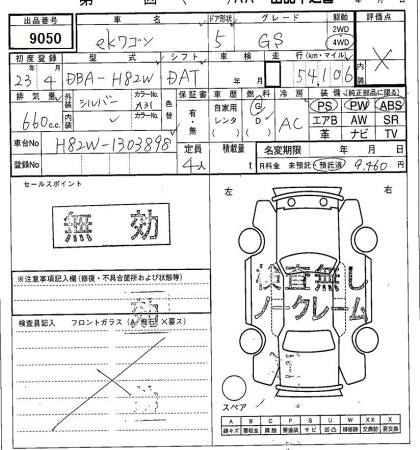 出品番号 車名 ドア形状 グレード 駆動 評価点
9050 ekワゴン 5 GS 2WD 4WD X
初度登録 型式 シフト 車検 走行(km・マイル) 内装
23年 4月 DBA-H82W DAT 年 月 54,106
排気量 外装 シルバー カラーNo. A31 色替 保証書 車歴 燃料 冷房 装備(純正部品に限る)
660c.c. 内装 カラーNo. 有・無 自家用 レンタ ( ) G D ( ) AC PS PW ABS
エアB AW SR
革 ナビ TV
車台No H82W-1303898 定員 積載量 名変期限 年 月 日
登録No 4人 t R料金 未預託 預託済 9,460円
セールスポイント 左 右
無効
※注意事項記入欄(修復・不具合箇所および状態等)
検査無し
ノークレーム
検査員記入 フロントガラス(A 飛石 X要ス)
スペア
A B C P S U W X XX
線キズ 要板金 腐蝕 要塗装 サビ 凹凸 補修跡 交換跡 要交換